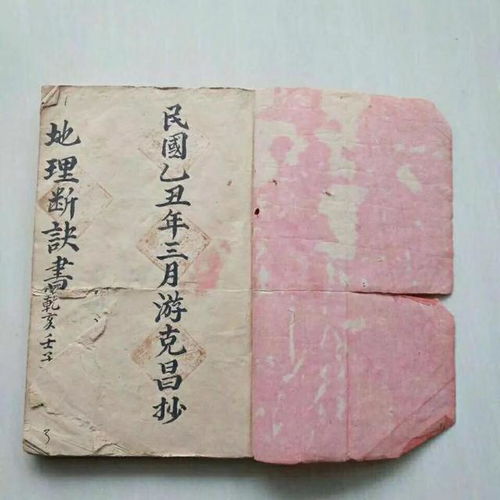 民國乙丑年三月游克昌抄
地理断訣書
乾亥壬子